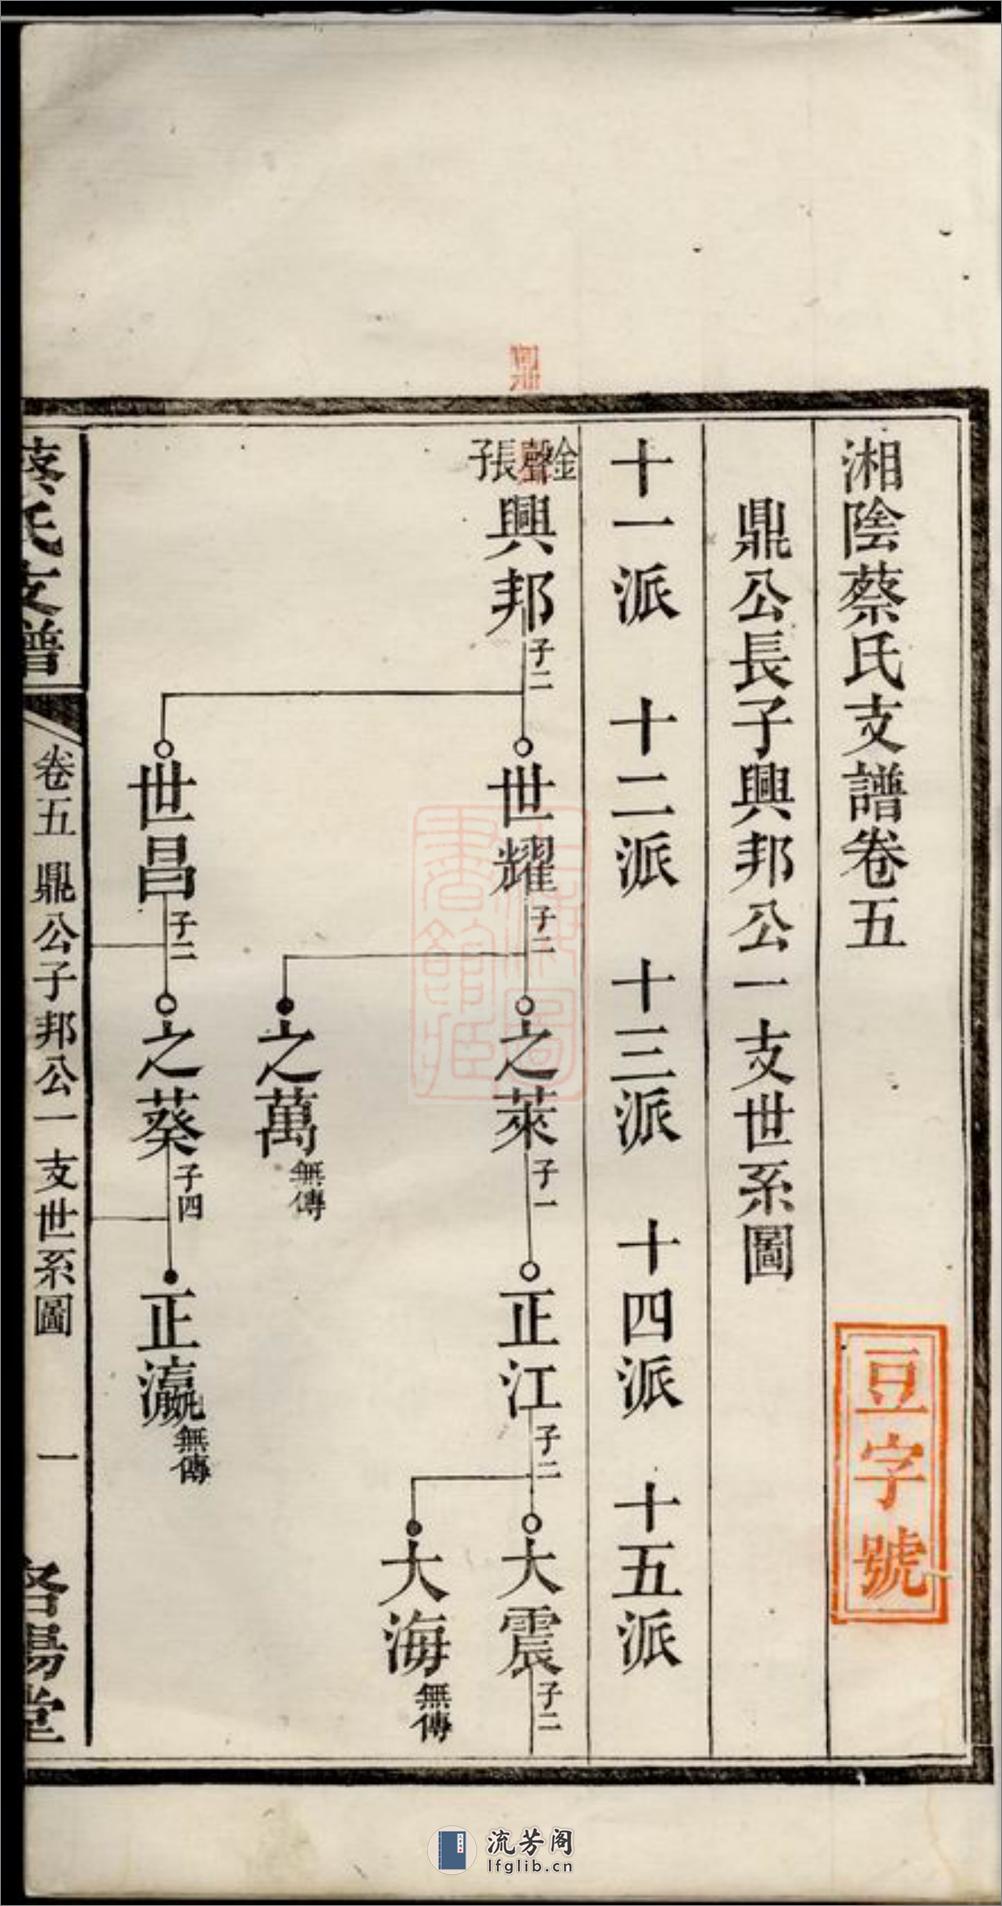 湘陰蔡氏支譜卷五
豆字號
鼎公長子興邦公一支世系圖
十一派 十二派 十三派 十四派 十五派
金聲長子
興邦 子二
世耀 子二
之萊 子一
正江 子二
大震 子二
大海 無傳
之萬 無傳
世昌 子二
之葵 子四
正瀛 無傳
蔡氏支譜
卷五 鼎公子邦公一支世系圖
一
洛陽堂
流芳阁
lfglib.cn